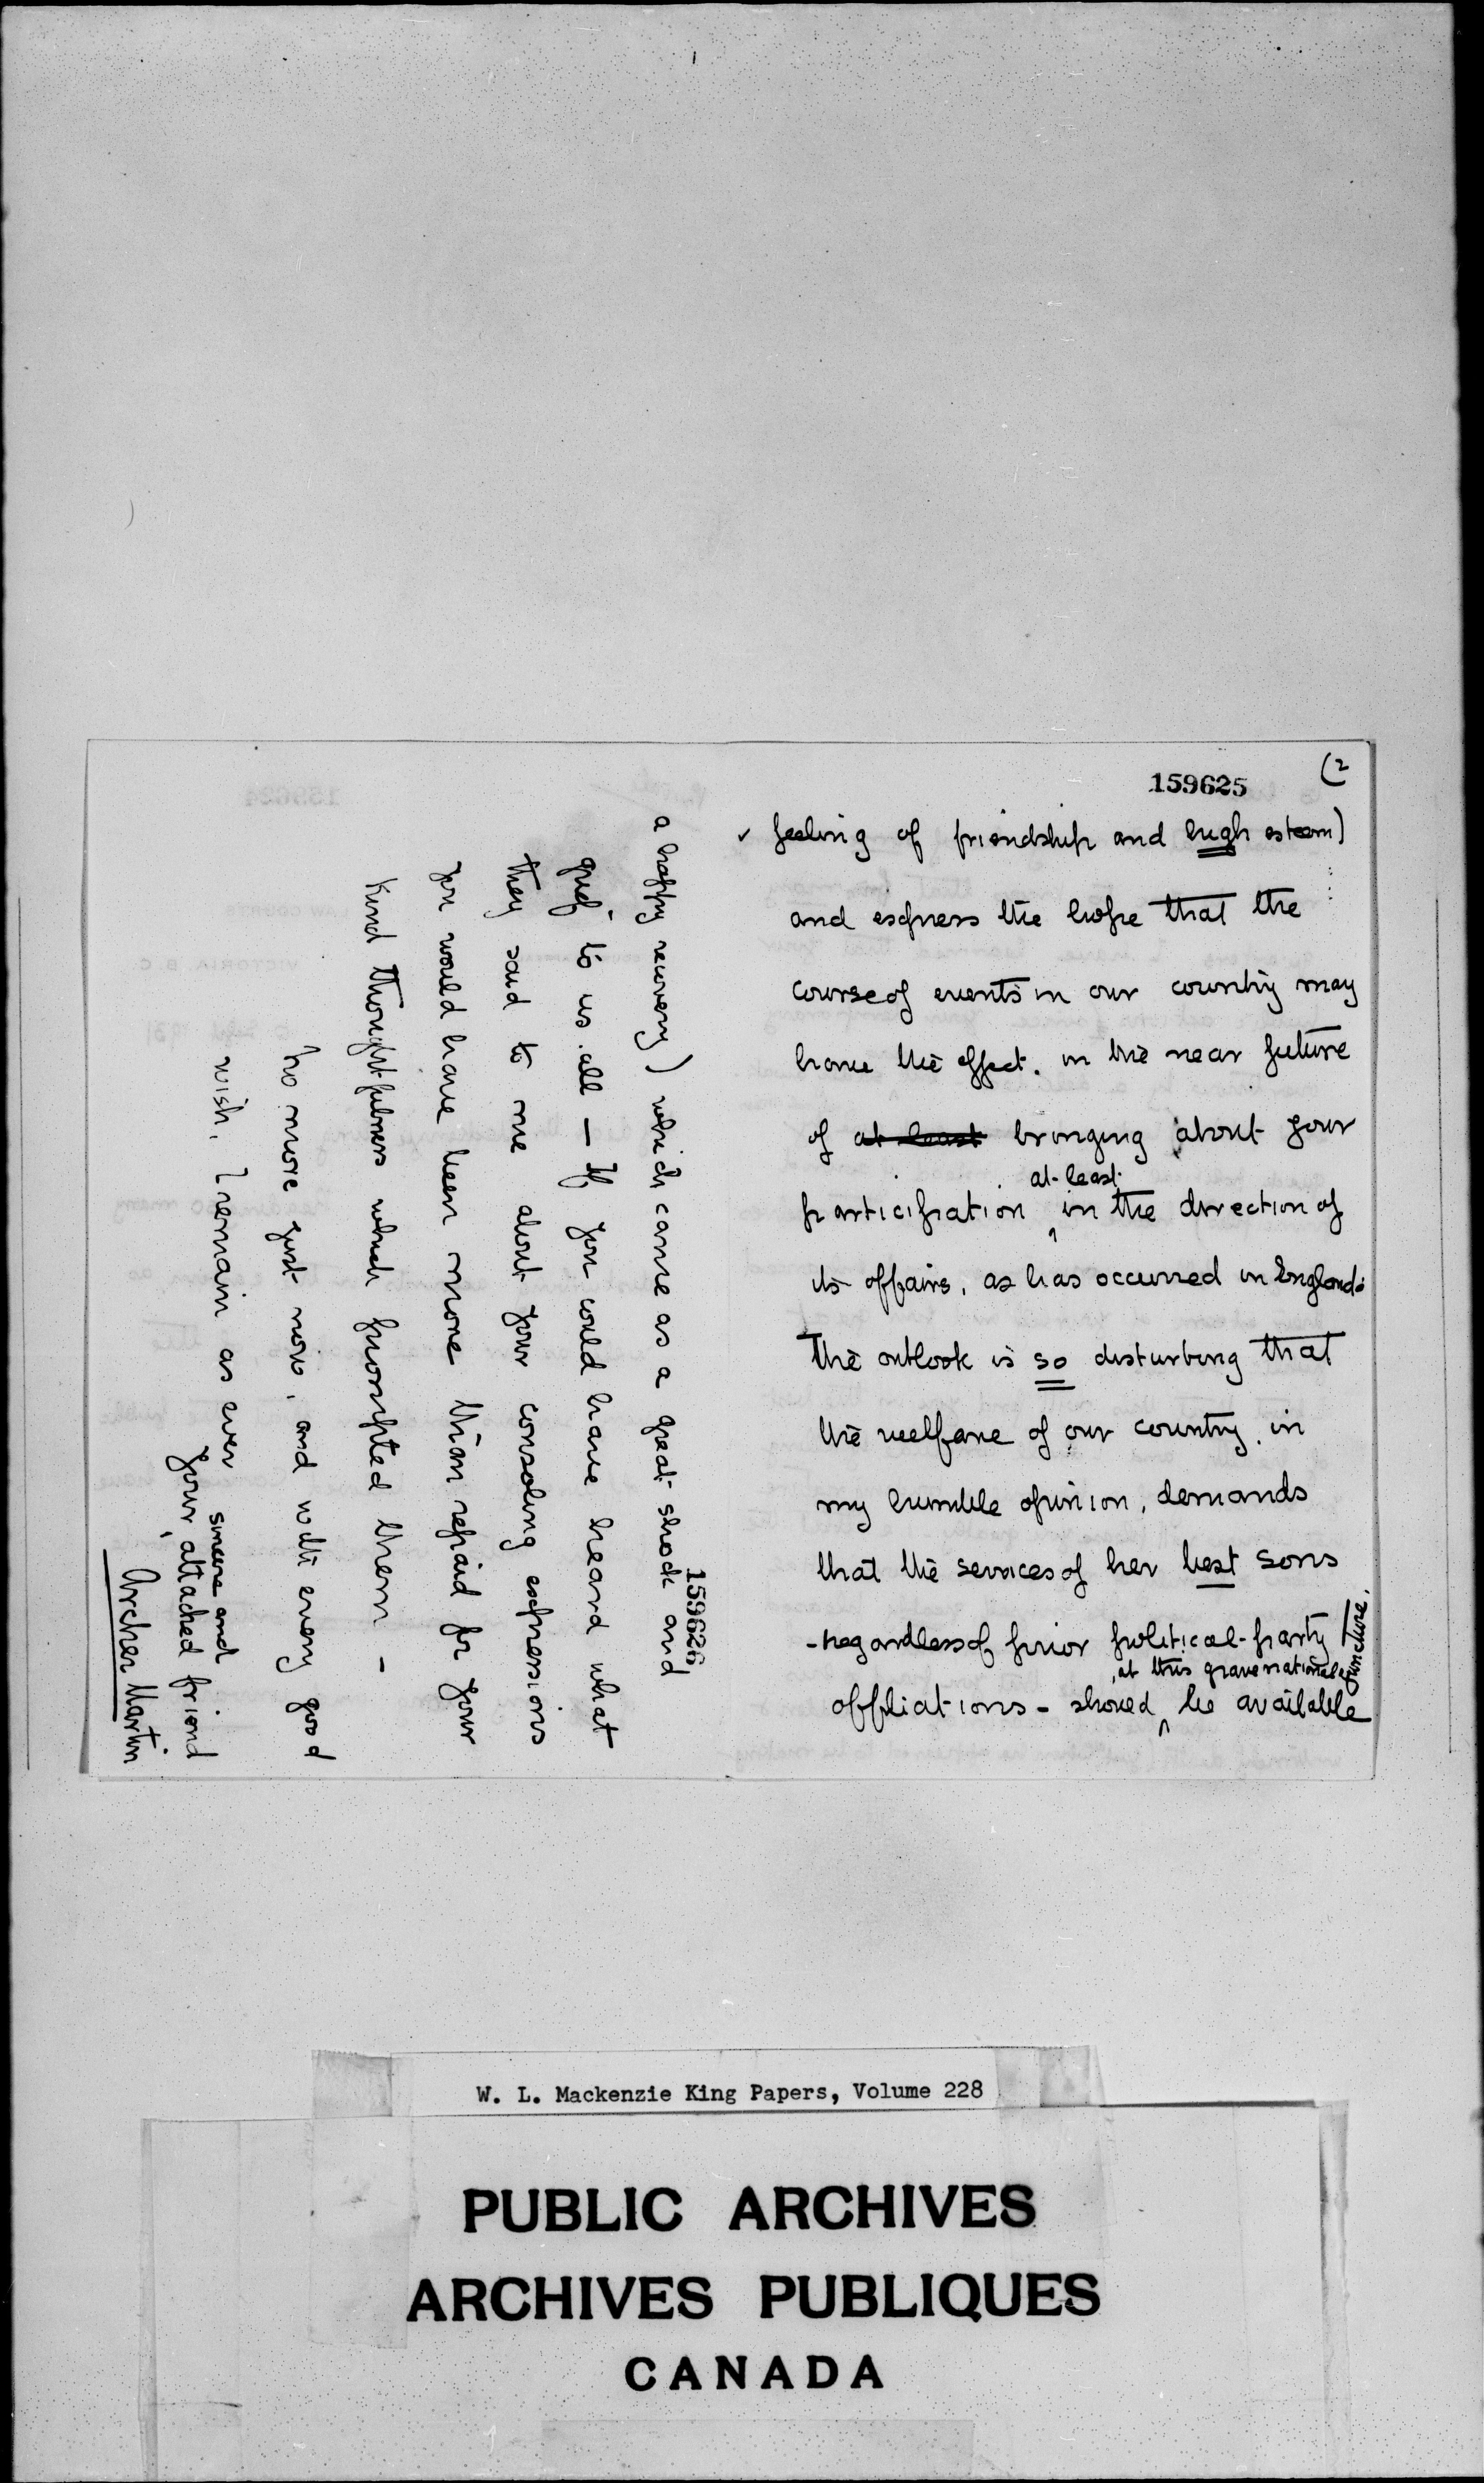 159625
(2
feeling of friendship and high esteem)
and express the hope that the
course of events in our country may
have the effect, in the near future
of at least bringing about your
at least
participation in the direction of
its affairs, as has occurred in England.
The outlook is so disturbing that
the welfare of our country, in
my humble opinion, demands
that the services of her best sons
- regardless of prior political-party
, at this grave national juncture,
affiliations - should be available
159626
a happy recovery) which came as a great shock and
grief to us all — If you could have heard what
they said to me about your consoling expressions
you would have been more than repaid for your
kind thoughtfulness which prompted them -
No more just now, and with every good
wish, I remain as ever
sincere and
Your attached friend
Archer Martin
W. L. Mackenzie King Papers, Volume 228
PUBLIC ARCHIVES
ARCHIVES PUBLIQUES
CANADA